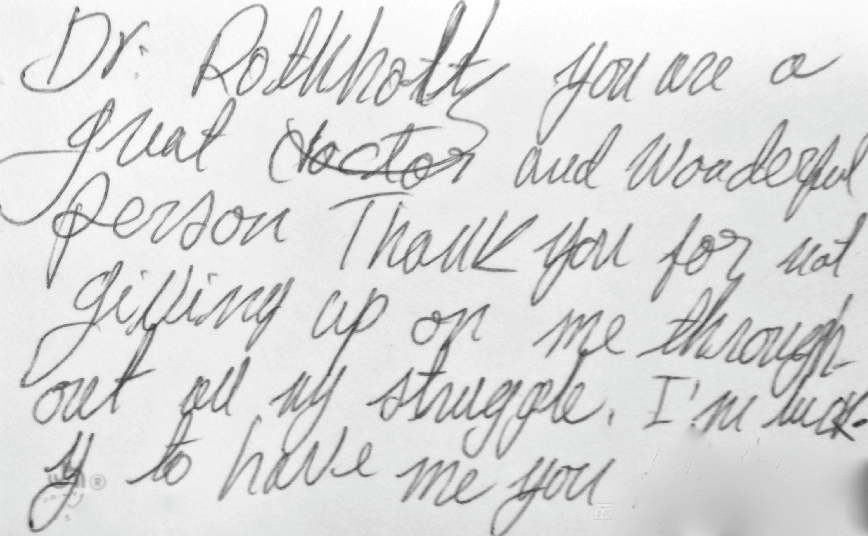 Dr. Rothholtz you are a
great doctor and wonderful
person Thank you for not
giving up on me through-
out all my struggle. I'm luck-
y to have me you